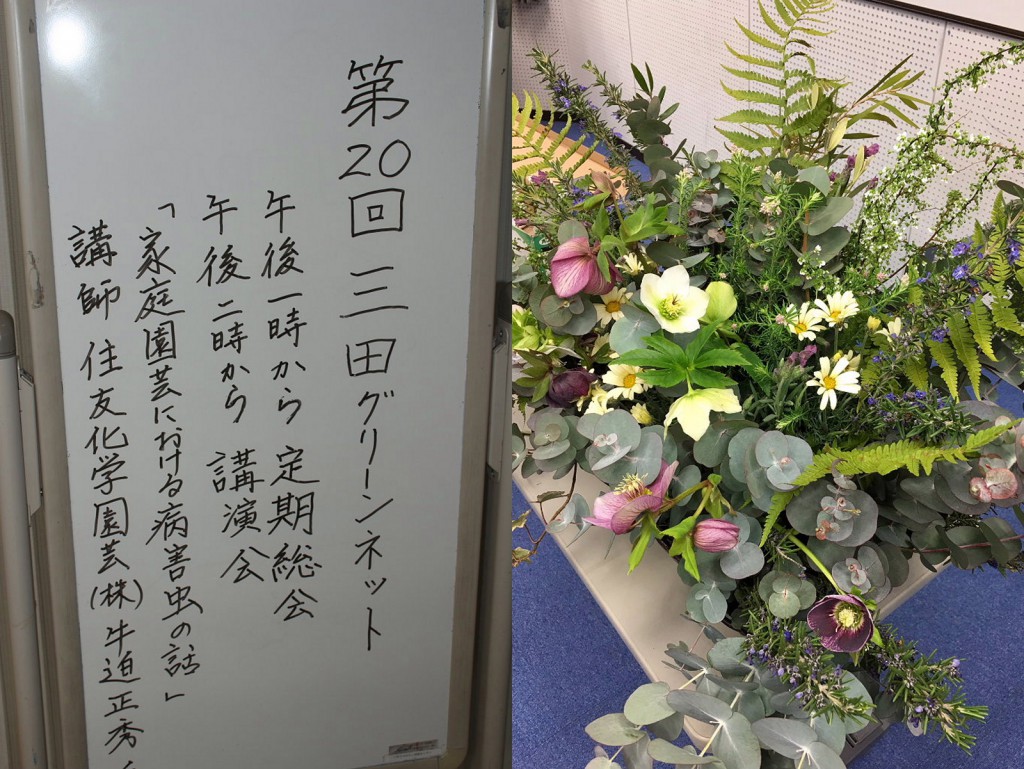 第20回 三田グリーンネット
午後一時から 定期総会
午後二時から 講演会
「家庭園芸における病害虫の話」
講師 住友化学園芸(株) 牛迫正秀